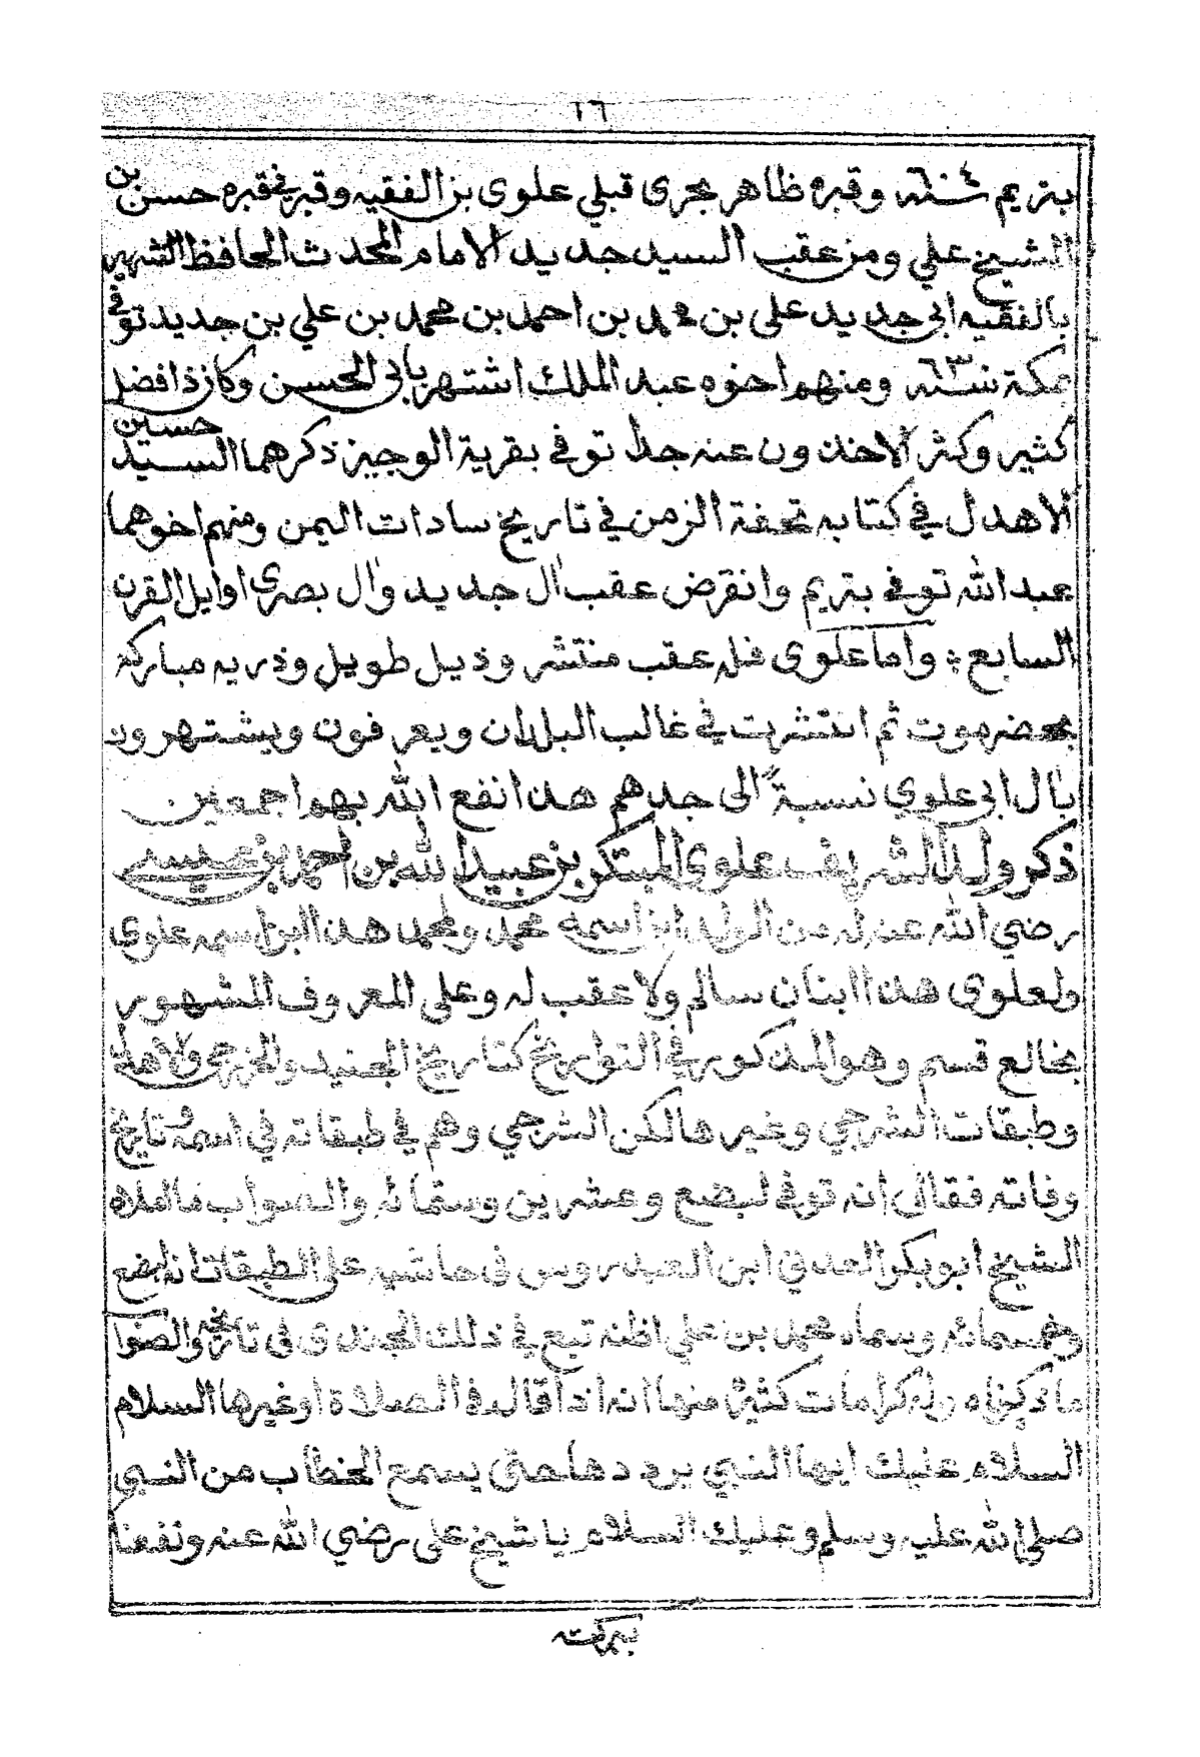 ١٦
بتريم سنة ٦٠٤ وقبره ظاهر بحرى قبلي علوى بن الفقيه وقبر في قبره حسن بن
الشيخ علي ومن عقب السيد جديد الامام المحدث الحافظ الشهير
بالفقيه ابى جديد على بن محمد بن احمد بن محمد بن علي بن جديد توفي
بمكة سنة ٦٣٠ ومنهم اخوه عبد الملك اشتهر بابى الحسن وكان ذا فضل
كثير وكثر الاخذون عنه جدا توفي بقرية الوجيز ذكرهما السيد حسين
الاهدل في كتابه تحفة الزمن في تاريخ سادات اليمن ومنهم اخوهما
عبد الله توفي بتريم وانقرض عقب ال جديد وال بصرى اوايل القرن
السابع ؛ واما علوى فله عقب منتشر وذيل طويل وذريه مباركه
بحضرموت ثم انتشرت في غالب البلدان ويعرفون ويشتهرون
بال ابى علوي نسبة الى جدهم هذا نفع الله بهم اجمعين
ذكر ولد الشريف علوى المبتكر بن عبيد الله بن احمد بن عيسى
رضي الله عنه له من الولد ابن اسمه محمد ومحمد هذا ابن اسمه علوى
ولعلوى هذا ابنان سالم ولا عقب له وعلى المعروف المشهور
بخالع قسم وهو المذكور في التواريخ كتاريخ الجنيد والخزرجى والاهدل
وطبقات الشرجي وغيرها لكن الشرجي وهم في طبقاته في اسمه وتاريخ
وفاته فقال انه توفي لبضع وعشرين وستمائه والصواب ما املاه
الشيخ ابو بكر العدني ابن العيدروس فى حاشيه على الطبقات انه لبضع
وخمسمائه وسماه محمد بن علي اظنه تبع في ذلك الجندى فى تاريخه والصوا
ما ذكرناه وله كرامات كثيرة منها انه اذا قال في الصلاة او غيرها السلام
السلام عليك ايها النبي يرددها حتى يسمع الخطاب من النبي
صلى الله عليه وسلم وعليك السلام يا شيخ على رضي الله عنه ونفعنا
ببركته